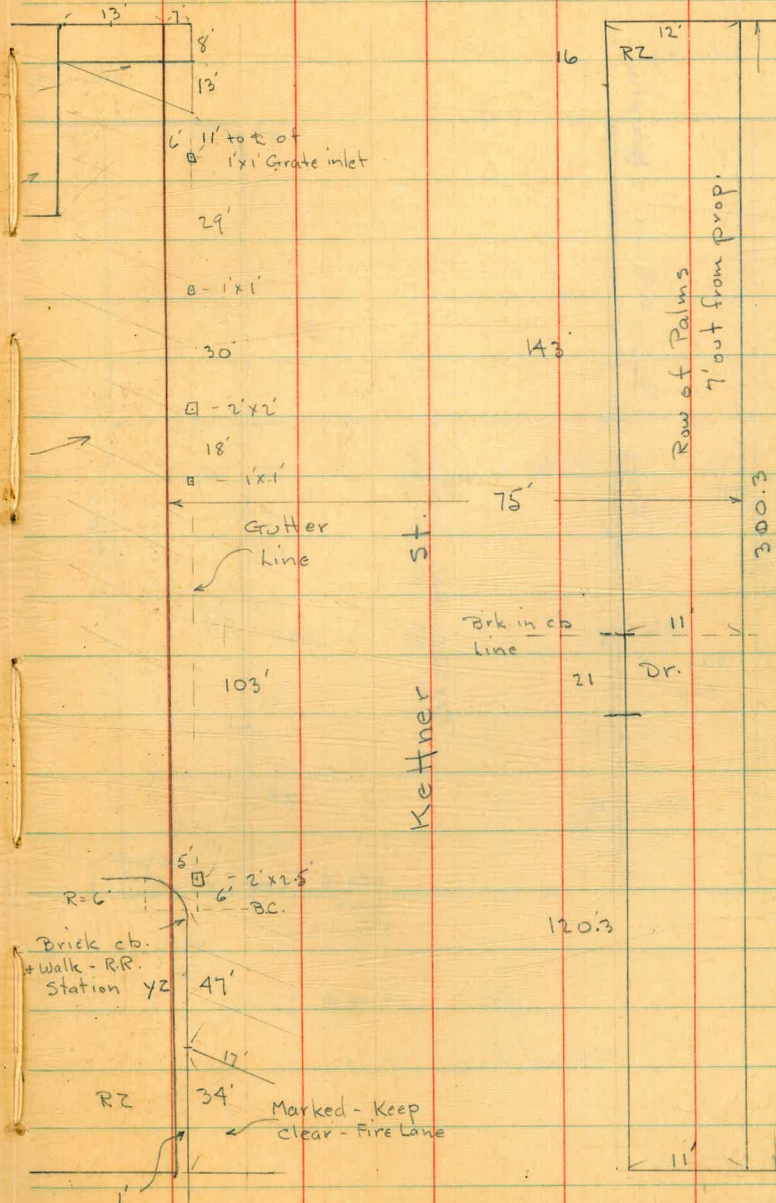 13' 7'
8'
13'
6' 11' to ℄ of
1'x1' Grate inlet
29'
- 1'x1'
30'
- 2'x2'
18'
- 1'x1'
Gutter
Line
103'
5'
- 2'x2.5'
6'
R=6'
B.C.
Brick cb.
+ Walk - R.R.
Station YZ
47'
17'
RZ
34'
Marked - Keep
clear - Fire Lane
1'
Kettner St.
75'
16
RZ
12'
143'
Row of Palms
7' out from prop.
300.3
Brk. in cb
Line
11'
21
Dr.
120.3
11'